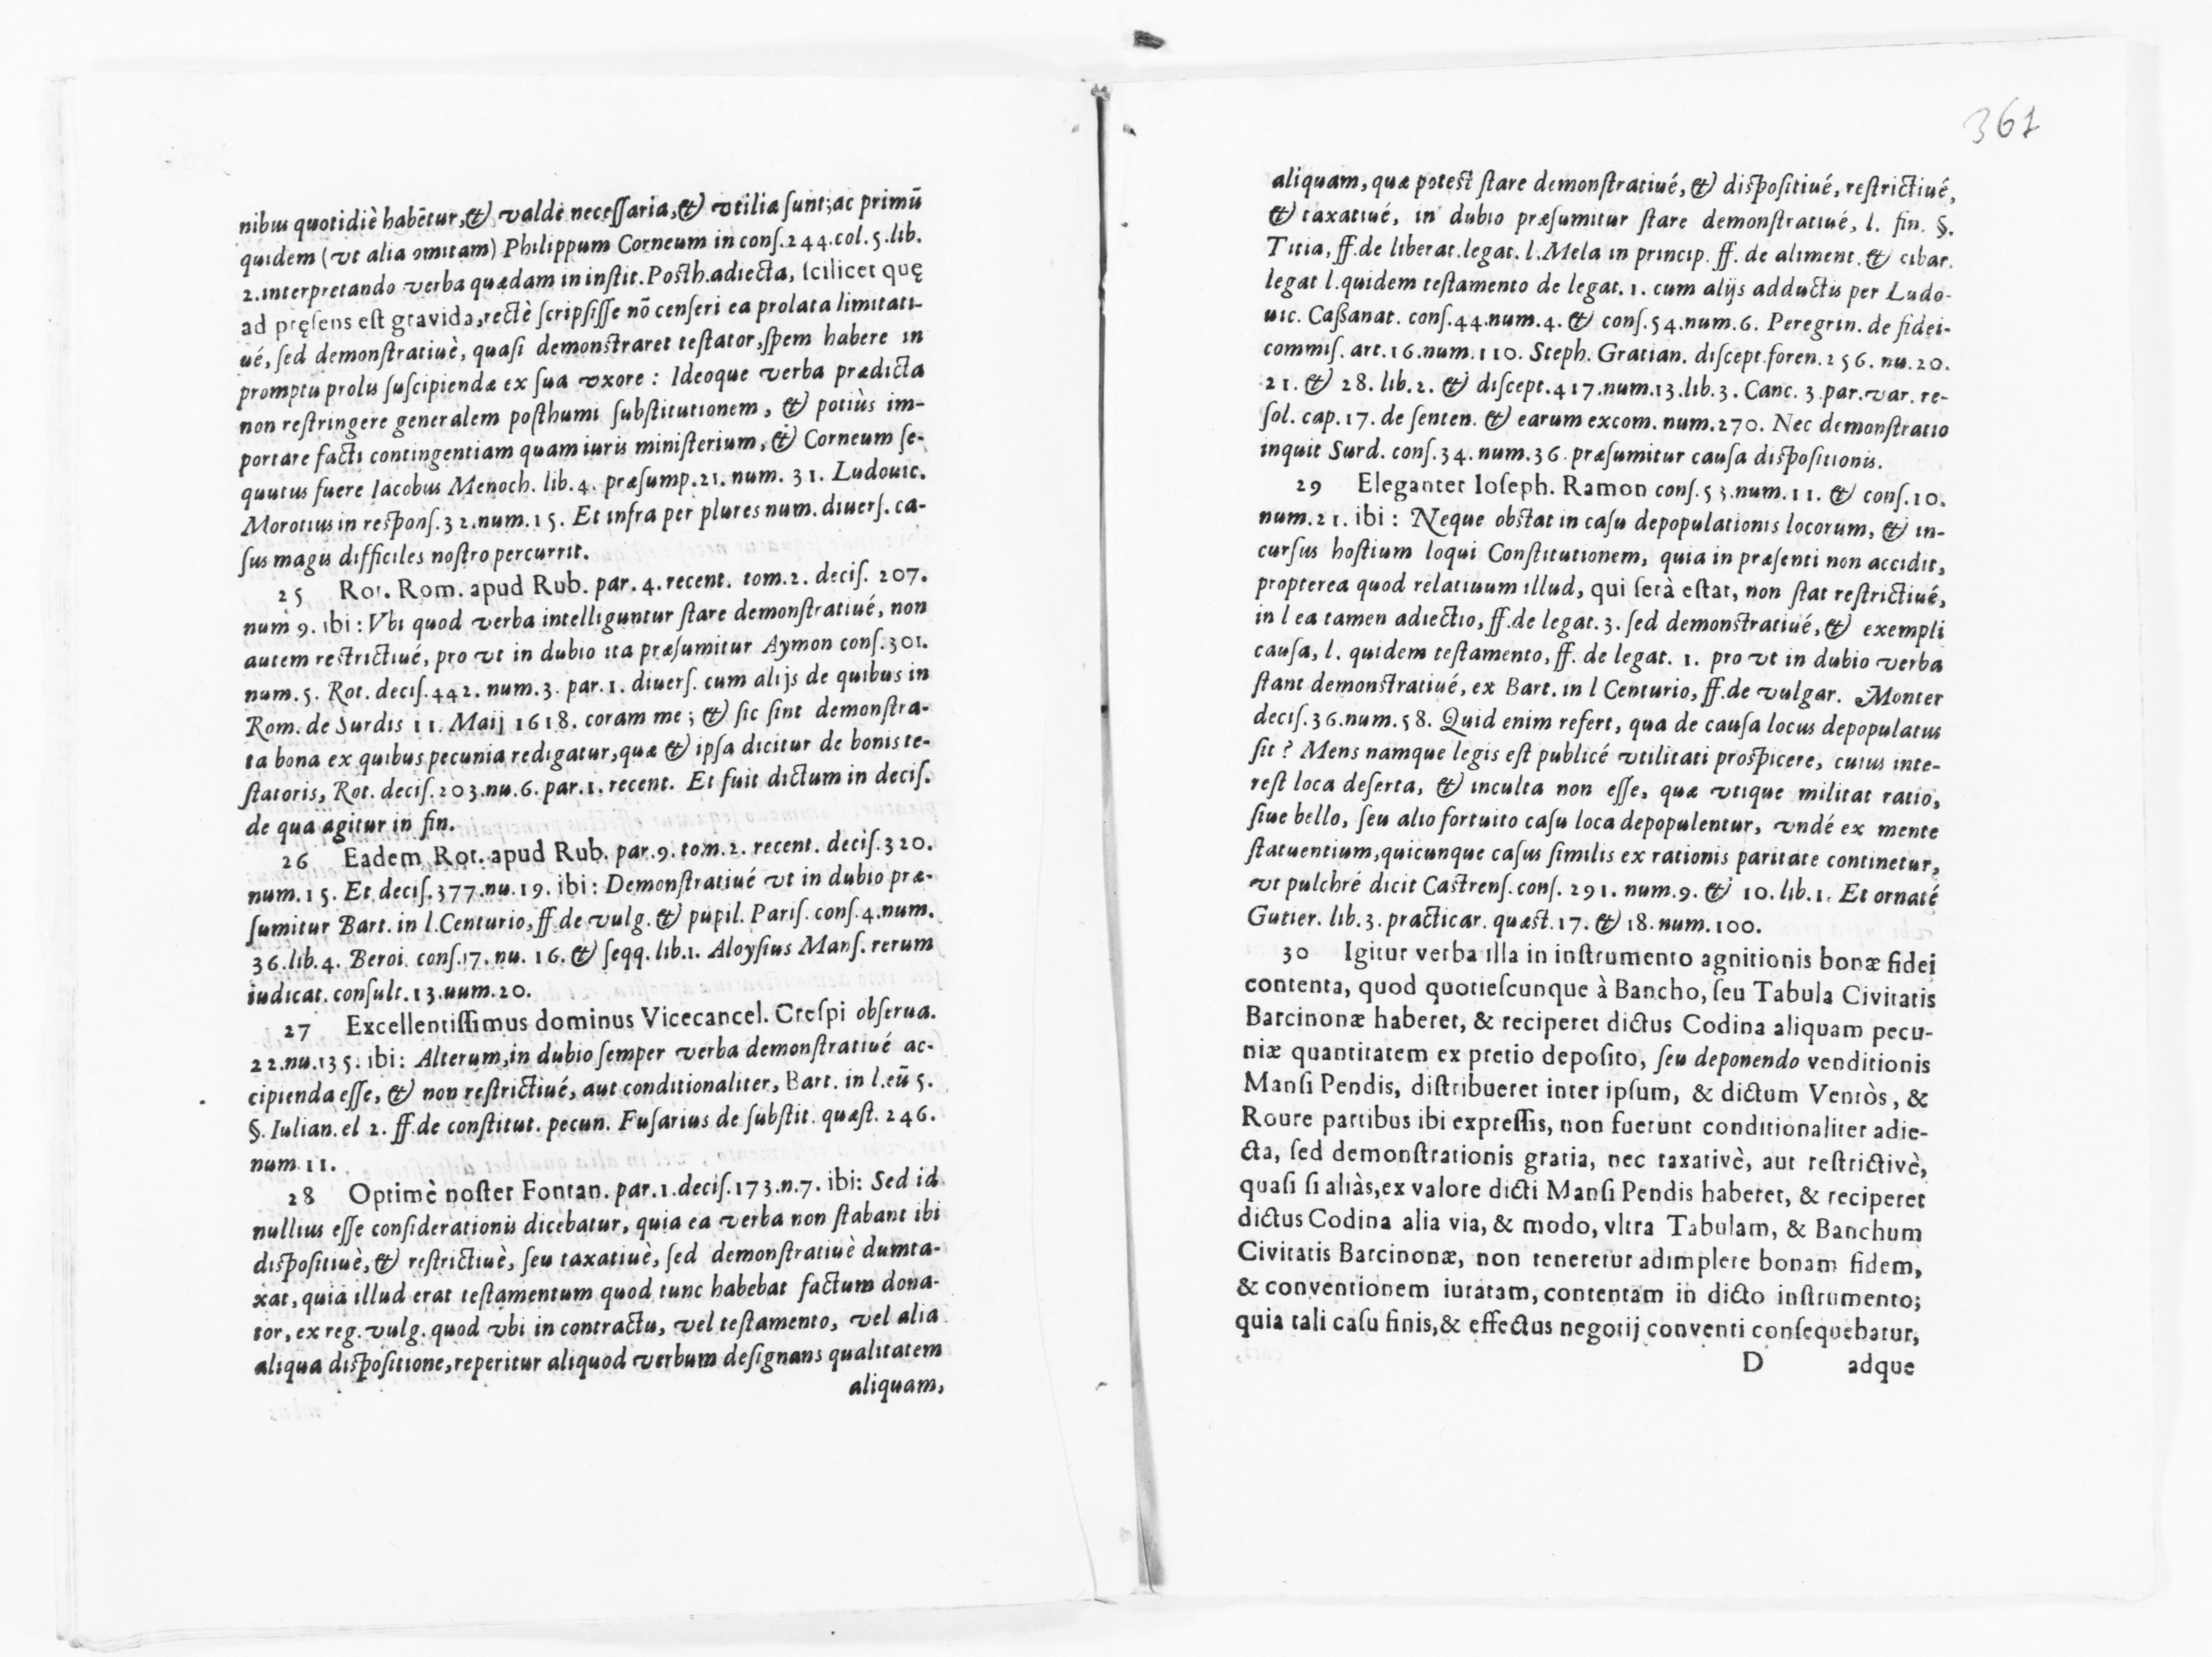 nibus quotidiè habẽtur, & valdè necessaria, & vtiliæ sunt; ac primũ
quidem (vt alia omitam) Philippum Corneum in cons.244.col.5.lib.
2.interpretando verba quædam in instit. Posth. adiecta, scilicet quę
ad pręsens est gravida, rectè scripsisse nõ censeri ea prolata limitati-
ué, sed demonstratiuè, quasi demonstraret testator, spem habere in
promptu prolis suscipiendæ ex sua vxore : Ideoque verba prædicta
non restringere generalem posthumi substitutionem, & potiùs im-
portare facti contingentiam quam iuris ministerium, & Corneum se-
quutus fuere Iacobus Menoch. lib.4. præsump.21. num. 31. Ludouic.
Morotius in respons.32.num.15. Et infra per plures num. diuers. ca-
sus magis difficiles nostro percurrit.
25 Rot. Rom. apud Rub. par. 4. recent. tom.2. decis. 207.
num 9. ibi : Vbi quod verba intelliguntur stare demonstratiué, non
autem restrictiué, pro vt in dubio ita præsumitur Aymon cons.301.
num.5. Rot. decis.442. num.3. par.1. diuers. cum alijs de quibus in
Rom. de Surdis 11. Maij 1618. coram me ; & sic sint demonstra-
ta bona ex quibus pecunia redigatur, quæ & ipsa dicitur de bonis te-
statoris, Rot. decis.203.nu.6. par.1. recent. Et fuit dictum in decis.
de qua agitur in fin.
26 Eadem Rot. apud Rub. par.9. tom.2. recent. decis.320.
num.15. Et decis.377.nu.19. ibi : Demonstratiué vt in dubio præ-
sumitur Bart. in l.Centurio, ff.de vulg. & pupil. Paris. cons.4.num.
36.lib.4. Beroi. cons.17. nu. 16. & seqq. lib.1. Aloysius Mans. rerum
iudicat. consult.13.uum.20.
27 Excellentissimus dominus Vicecancel. Crespi obserua.
22.nu.135. ibi : Alterum, in dubio semper verba demonstratiué ac-
cipienda esse, & non restrictiué, aut conditionaliter, Bart. in l.eũ 5.
§. Iulian. el 2. ff.de constitut. pecun. Fusarius de substit. quæst. 246.
num 11.
28 Optimè noster Fontan. par.1.decis.173.n.7. ibi: Sed id
nullius esse considerationis dicebatur, quia ea verba non stabant ibi
dispositiuè, & restrictiuè, seu taxatiuè, sed demonstratiuè dumta-
xat, quia illud erat testamentum quod tunc habebat factum dona-
tor, ex reg. vulg. quod vbi in contractu, vel testamento, vel alia
aliqua dispositione, reperitur aliquod verbum designans qualitatem
aliquam,
361
aliquam, quæ potest stare demonstratiué, & dispositiué, restrictiué,
& taxatiué, in dubio præsumitur stare demonstratiué, l. fin. §.
Titia, ff.de liberat.legat. l.Mela in princip. ff. de aliment. & cibar.
legat l.quidem testamento de legat. 1. cum alijs adductis per Ludo-
uic. Caßanat. cons.44.num.4. & cons.54.num.6. Peregrin. de fidei-
commis. art.16.num.110. Steph. Gratian. discept.foren.256. nu.20.
21. & 28. lib.2. & discept.417.num.13.lib.3. Canc. 3.par.var. re-
sol. cap.17. de senten. & earum excom. num.270. Nec demonstratio
inquit Surd. cons.34. num.36. præsumitur causa dispositionis.
29 Eleganter Ioseph. Ramon cons.53.num.11. & cons.10.
num.21. ibi : Neque obstat in casu depopulationis locorum, & in-
cursus hostium loqui Constitutionem, quia in præsenti non accidit,
propterea quod relatiuum illud, qui serà estat, non stat restrictiué,
in l ea tamen adiectio, ff.de legat. 3. sed demonstratiué, & exempli
causa, l. quidem testamento, ff. de legat. 1. pro vt in dubio verba
stant demonstratiué, ex Bart. in l Centurio, ff.de vulgar. Monter
decis.36.num.58. Quid enim refert, qua de causa locus depopulatus
sit ? Mens namque legis est publicé vtilitati prospicere, cuius inte-
rest loca deserta, & inculta non esse, quæ vtique militat ratio,
siue bello, seu alio fortuito casu loca depopulentur, vndé ex mente
statuentium, quicunque casus similis ex rationis paritate continetur,
vt pulchré dicit Castrens. cons. 291. num.9. & 10. lib.1. Et ornaté
Gutier. lib.3. practicar. quæst.17. & 18. num.100.
30 Igitur verba illa in instrumento agnitionis bonæ fidei
contenta, quod quotiescunque à Bancho, seu Tabula Civitatis
Barcinonæ haberet, & reciperet dictus Codina aliquam pecu-
niæ quantitatem ex pretio deposito, seu deponendo venditionis
Mansi Pendis, distribueret inter ipsum, & dictum Ventòs, &
Roure partibus ibi expressis, non fuerunt conditionaliter adie-
cta, sed demonstrationis gratia, nec taxativè, aut restrictivè,
quasi si aliàs, ex valore dicti Mansi Pendis haberet, & reciperet
dictus Codina alia via, & modo, vltra Tabulam, & Banchum
Civitatis Barcinonæ, non teneretur adimplere bonam fidem,
& conventionem iuratam, contentam in dicto instrumento;
quia tali casu finis, & effectus negotij conventi consequebatur,
D adque